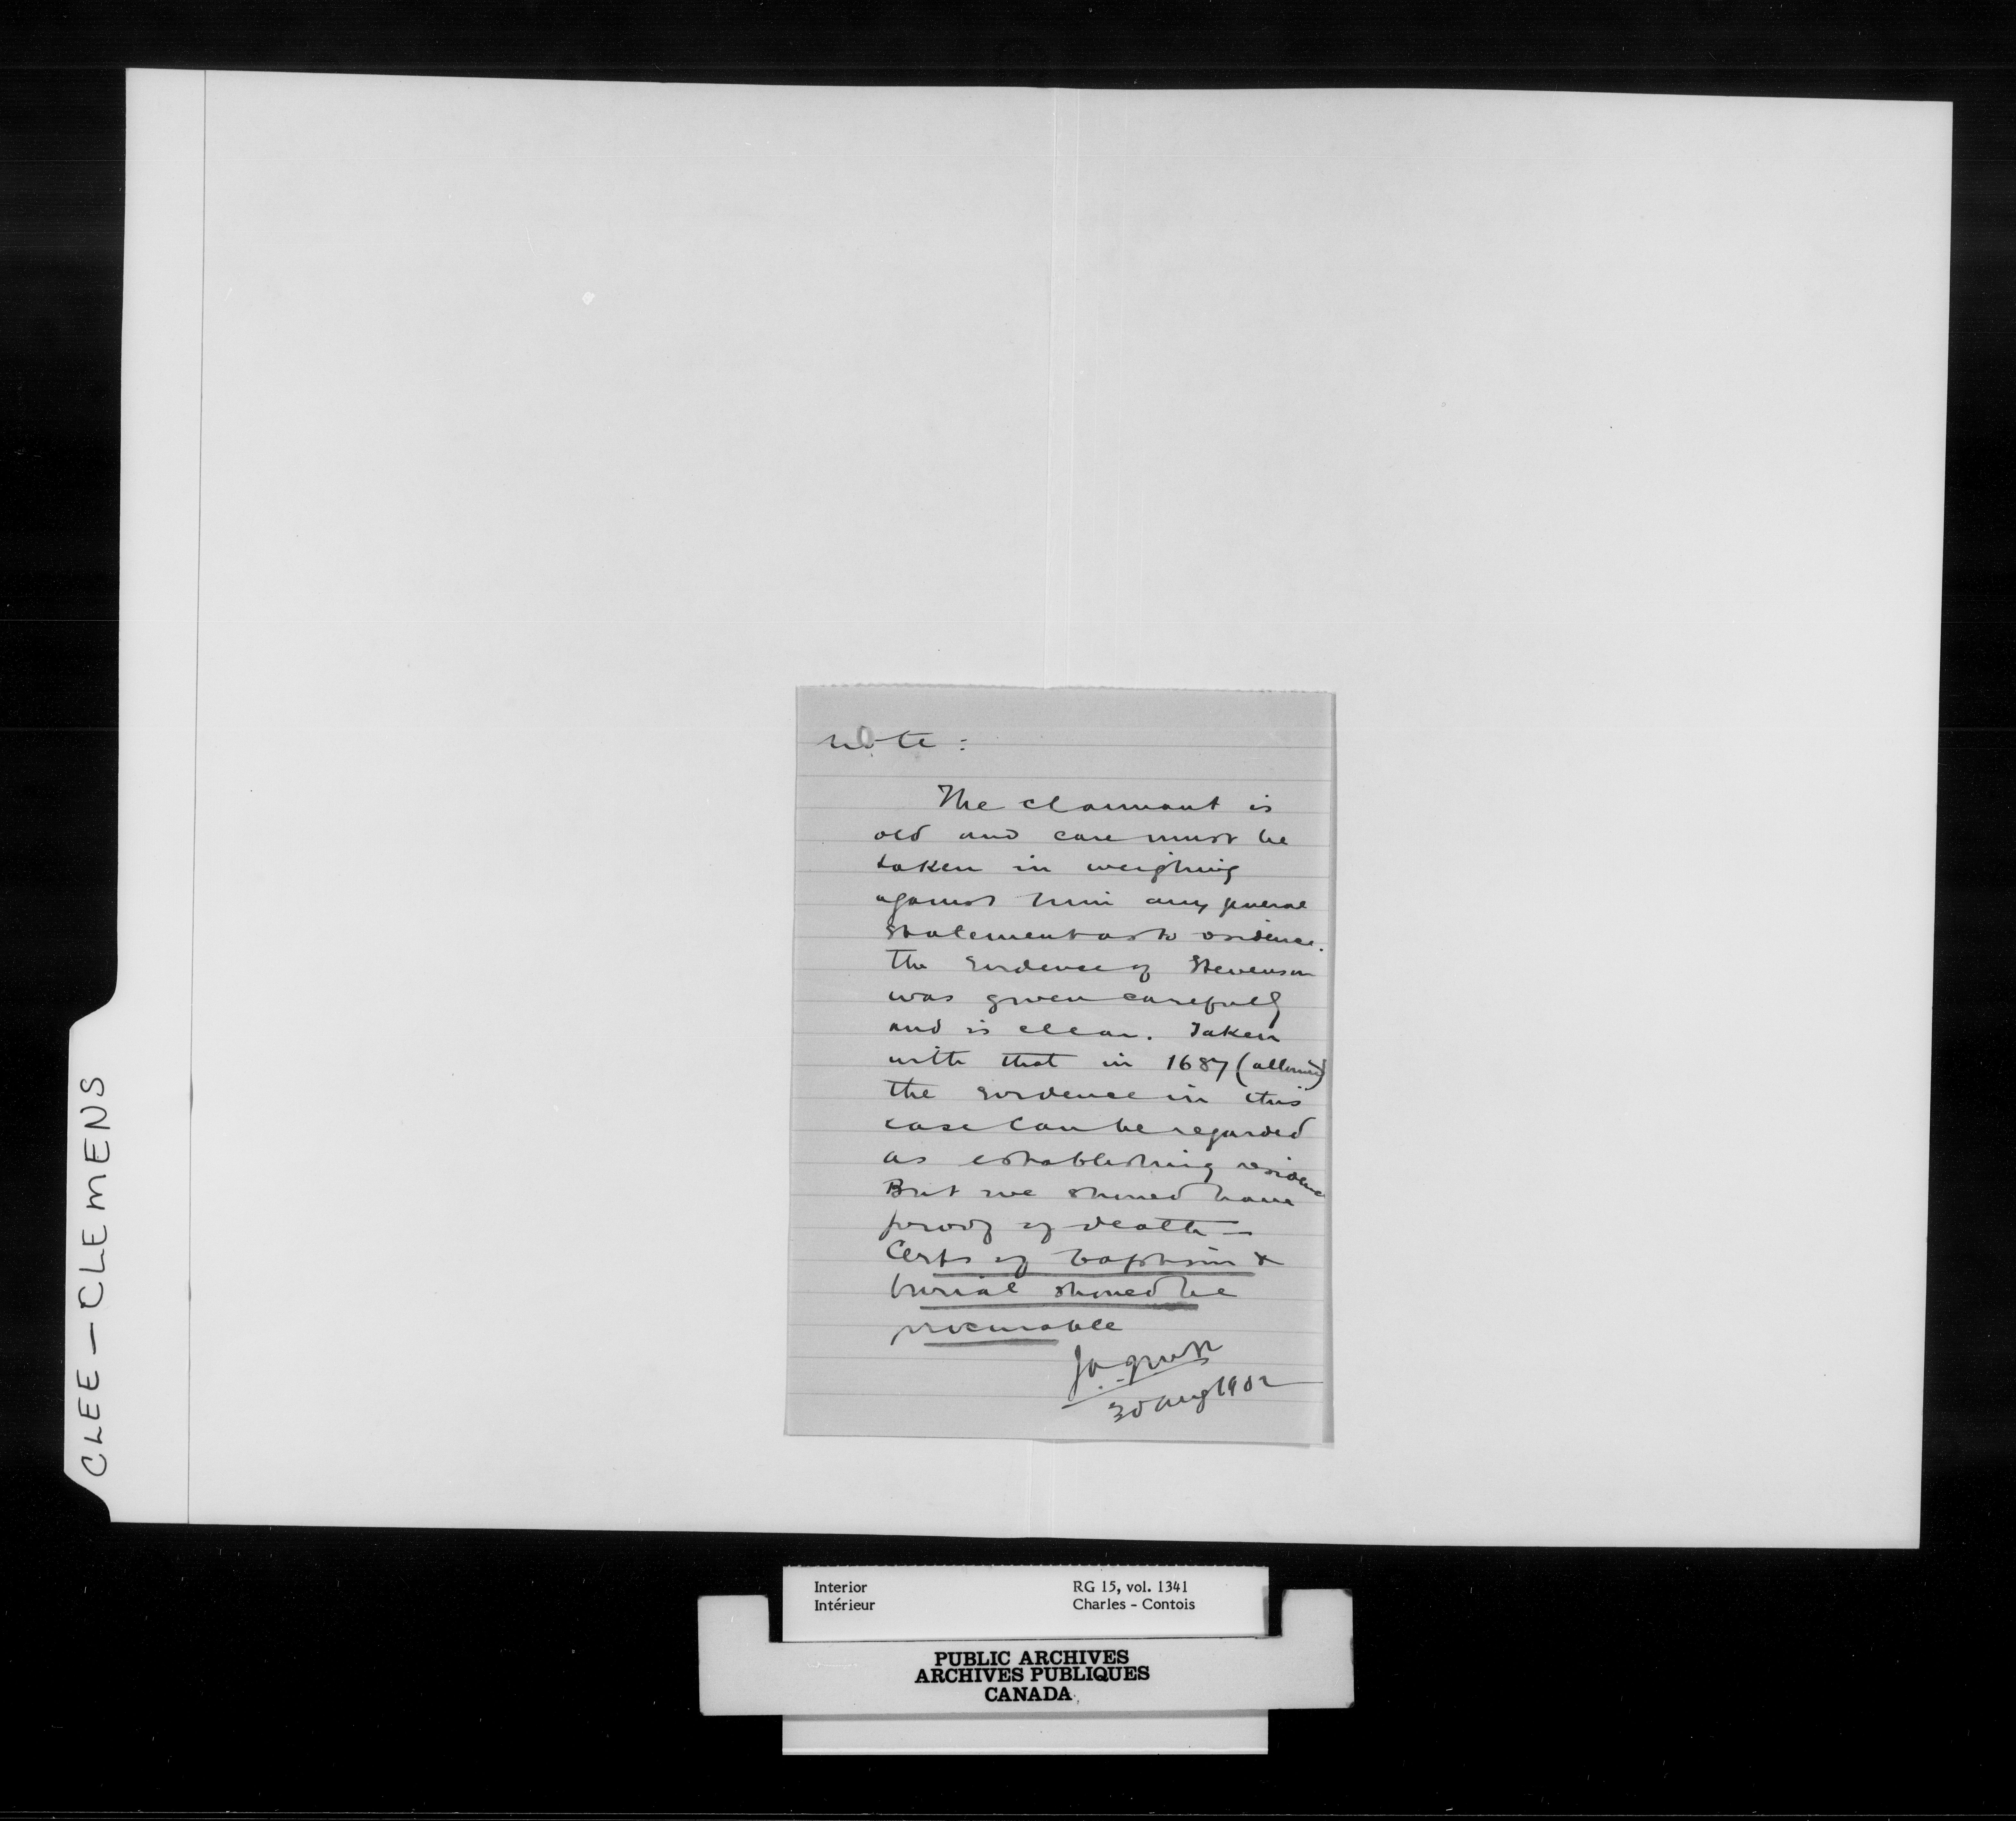 Note :
The claimant is
old and care must be
taken in weighing
against him any general
statement as to residence.
The evidence of Stevenson
was given carefully
and is clear. Taken
with that in 1687 (allowed)
the evidence in this
case can be regarded
as establishing residence
But we should have
proof of death –
Certs of baptism &
burial should be
procurable
30 Aug 1902
CLEE – CLEMENS
Interior RG 15, vol. 1341
Intérieur Charles – Contois
PUBLIC ARCHIVES
ARCHIVES PUBLIQUES
CANADA